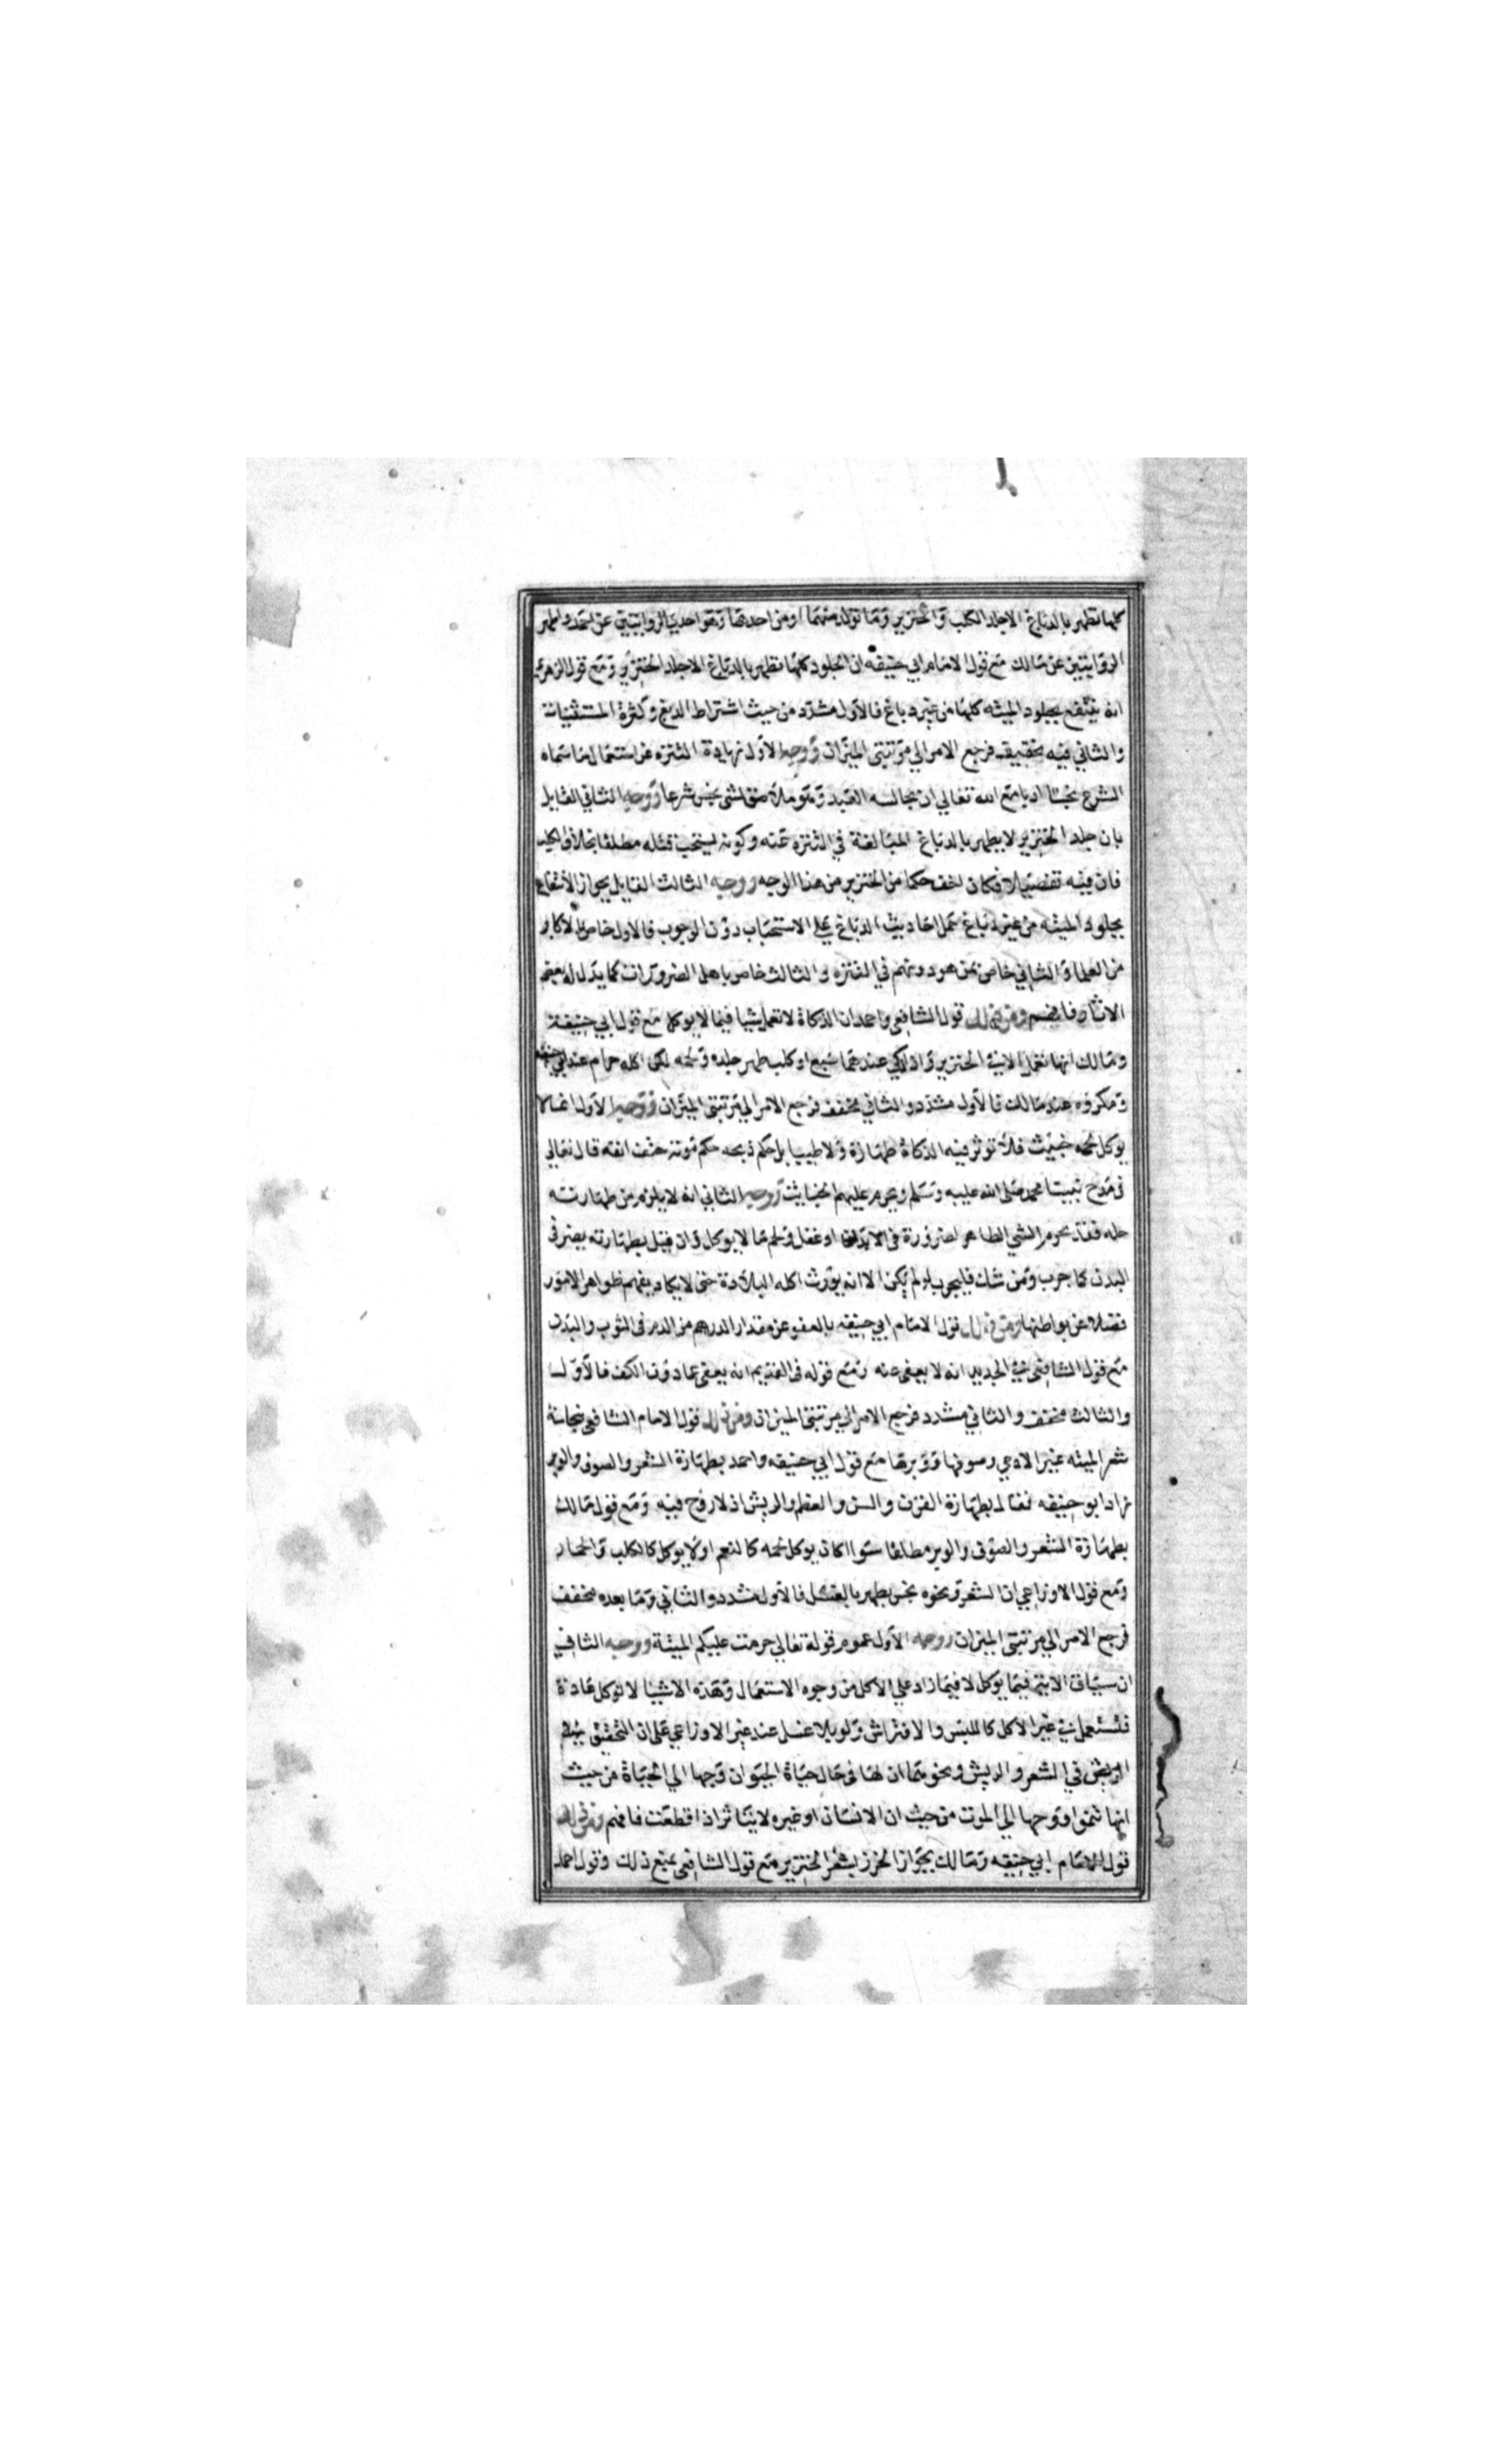 كلها تطهر بالدباغ الا جلد الكلب والخنزير وما تولد منهما او من احدهما وهو احدي الروايتين عن احمد واظهر
الروايتين عن مالك مع قول الامام ابي حنيفه ان الجلود كلها تطهر بالدباغ الا جلد الخنزير ومع قول الزهري
انه ينتفع بجلود الميته كلها من غير دباغ فالاول مشدد من حيث اشتراط الدبغ وكثرة المستثنيات
والثاني فيه تخفيف فرجع الامر الي مرتبتي الميزان ووجه الاول زيادة التنزه عن استعمال ما سماه
الشرع نجسا ادبا مع الله تعالي ان يجالسه العبد وهو ملاصق لشي نجس شرعا ووجه الثاني القايل
بان جلد الخنزير لا يطهر بالدباغ المبالغة في التنزه عنه وكونه يستحب قتله مطلقا بخلاف الكلب
فان فيه تفصيلا فكان اخف حكما من الخنزير من هذا الوجه ووجه الثالث القايل بجواز الانتفاع
بجلود الميته من غير دباغ حمل احاديث الدباغ علي الاستحباب دون الوجوب فالاول خاص بالاكابر
من العلما والثاني خاص بمن هو دونهم في التنزه والثالث خاص باهل الضرورات كما يدل له بعض
الاثار فافهم ومن ذلك قول الشافعي واحمد ان الذكاة لا تعمل شيا فيما لا يوكل مع قول ابي حنيفة
ومالك انها تعمل الا في الخنزير واذا ذكي عندهما سبع او كلب طهر جلده ولحمه لكن اكله حرام عند ابي حنيفه
ومكروه عند مالك فالاول مشدد والثاني مخفف فرجع الامر الي مرتبتي الميزان ووجه الاول ان ما لا
يوكل لحمه خبيث فلا توثر فيه الذكاة طهارة ولا طيبا بل حكم ذبحه حكم موته حتف انفه قال تعالي
في مدح نبينا محمد صلى الله عليه وسلم ويحرم عليهم الخبايث ووجه الثاني انه لا يلزم من طهارته
حله فقد يحرم الشي الطاهر لضرورة في الابدان او عقل ولحم ما لا يوكل وان قيل بطهارته يضر في
البدن كما جرب ومن شك فليجرب ولو لم يكن الا انه يورث اكله البلادة حتى لا يكاد يفهم ظواهر الامور
فضلا عن بواطنها ومن ذلك قول الامام ابي حنيفه بالعفو عن مقدار الدرهم من الدم في الثوب والبدن
مع قول الشافعي في الجديد انه لا يعفى عنه ومع قوله في القديم انه يعفى عما دون الكف فالاول
والثالث مخفف والثاني مشدد فرجع الامر الي مرتبتي الميزان ومن ذلك قول الامام الشافعي بنجاسة
شعر الميته غير الادمي وصوفها ووبرها مع قول ابي حنيفه واحمد بطهارة الشعر والصوف والوبر
زاد ابو حنيفه فقال بطهارة القرن والسن والعظم والريش اذ لا روح فيه ومع قول مالك
بطهارة الشعر والصوف والوبر مطلقا سوا اكان يوكل لحمه كالنعم او لا يوكل كالكلب والحمار
ومع قول الاوزاعي ان الشعر ونحوه نجس يطهر بالغسل فالاول مشدد والثاني وما بعده مخفف
فرجع الامر الي مرتبتي الميزان ووجه الاول عموم قوله تعالي حرمت عليكم الميتة ووجه الثاني
ان سياق الاية فيما يوكل لا فيما زاد علي الاكل من وجوه الاستعمال وهذه الاشيا لا توكل عادة
فتستعمل في غير الاكل كاللبس والافتراش ولو بلا غسل عند غير الاوزاعي علي ان التحقيق
في الشعر والريش ونحوهما ان لها في حال حياة الحيوان وجها الي الحياة من حيث
انها تنمو ووجها الي الموت من حيث ان الانسان او غيره لا يتاثر اذا قطعت فافهم ومن ذلك
قول الامام ابي حنيفه ومالك بجواز الخرز بشعر الخنزير مع قول الشافعي بمنع ذلك وقول احمد